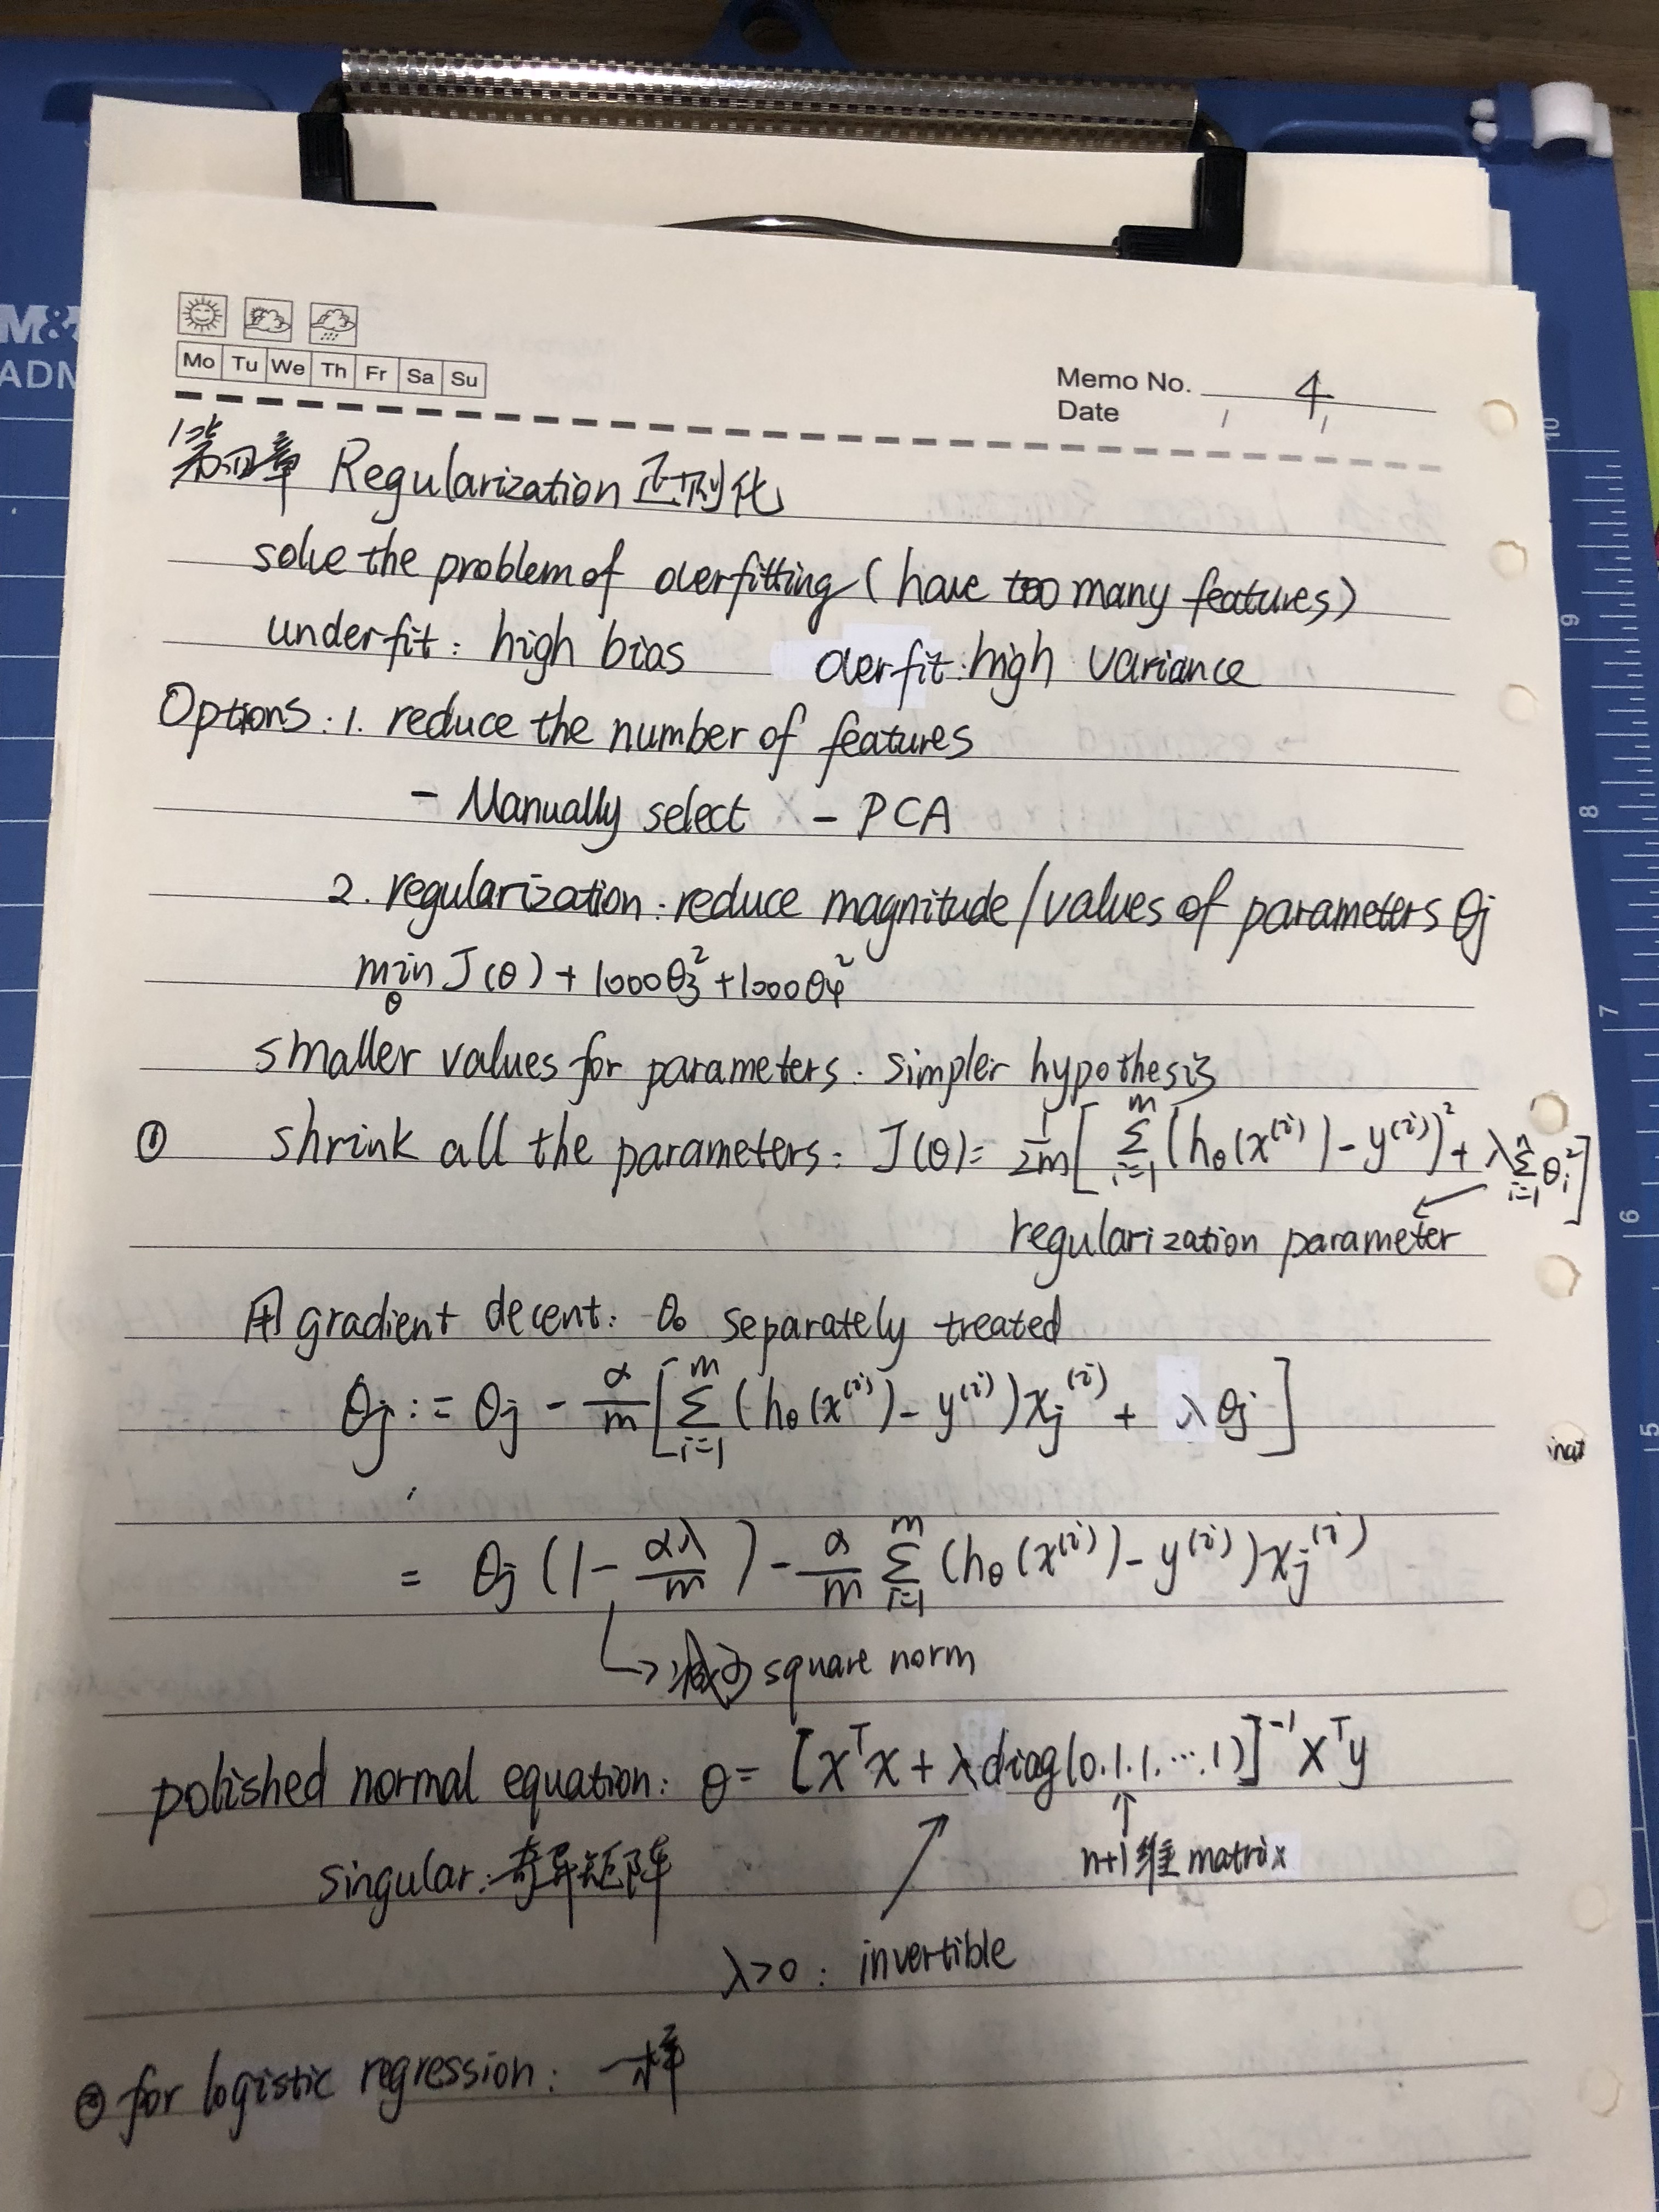 M&
ADM
Mo Tu We Th Fr Sa Su
Memo No. 4
Date / /
第四章 Regularization 正则化
solve the problem of overfitting (have too many features)
underfit: high bias overfit: high variance
Options: 1. reduce the number of features
- Manually select - PCA
2. regularization: reduce magnitude/values of parameters θj
min_θ J(θ) + 1000θ₃² + 1000θ₄²
smaller values for parameters: simpler hypothesis
① shrink all the parameters: J(θ) = 1/2m [ Σ_{i=1}^{m} (hθ(x⁽ⁱ⁾) - y⁽ⁱ⁾)² + λ Σ_{i=1}^{n} θᵢ² ]
regularization parameter
用 gradient decent: θ₀ separately treated
θj := θj - α/m [ Σ_{i=1}^{m} (hθ(x⁽ⁱ⁾) - y⁽ⁱ⁾) xj⁽ⁱ⁾ + λ θj ]
= θj (1 - αλ/m) - α/m Σ_{i=1}^{m} (hθ(x⁽ⁱ⁾) - y⁽ⁱ⁾) xj⁽ⁱ⁾
→ 减小 square norm
polished normal equation: θ = [XᵀX + λ diag(0.1.1.…1)]⁻¹ Xᵀy
singular: 奇异矩阵
n+1 维 matrix
λ>0: invertible
② for logistic regression: 一样
10
9
8
7
6
5